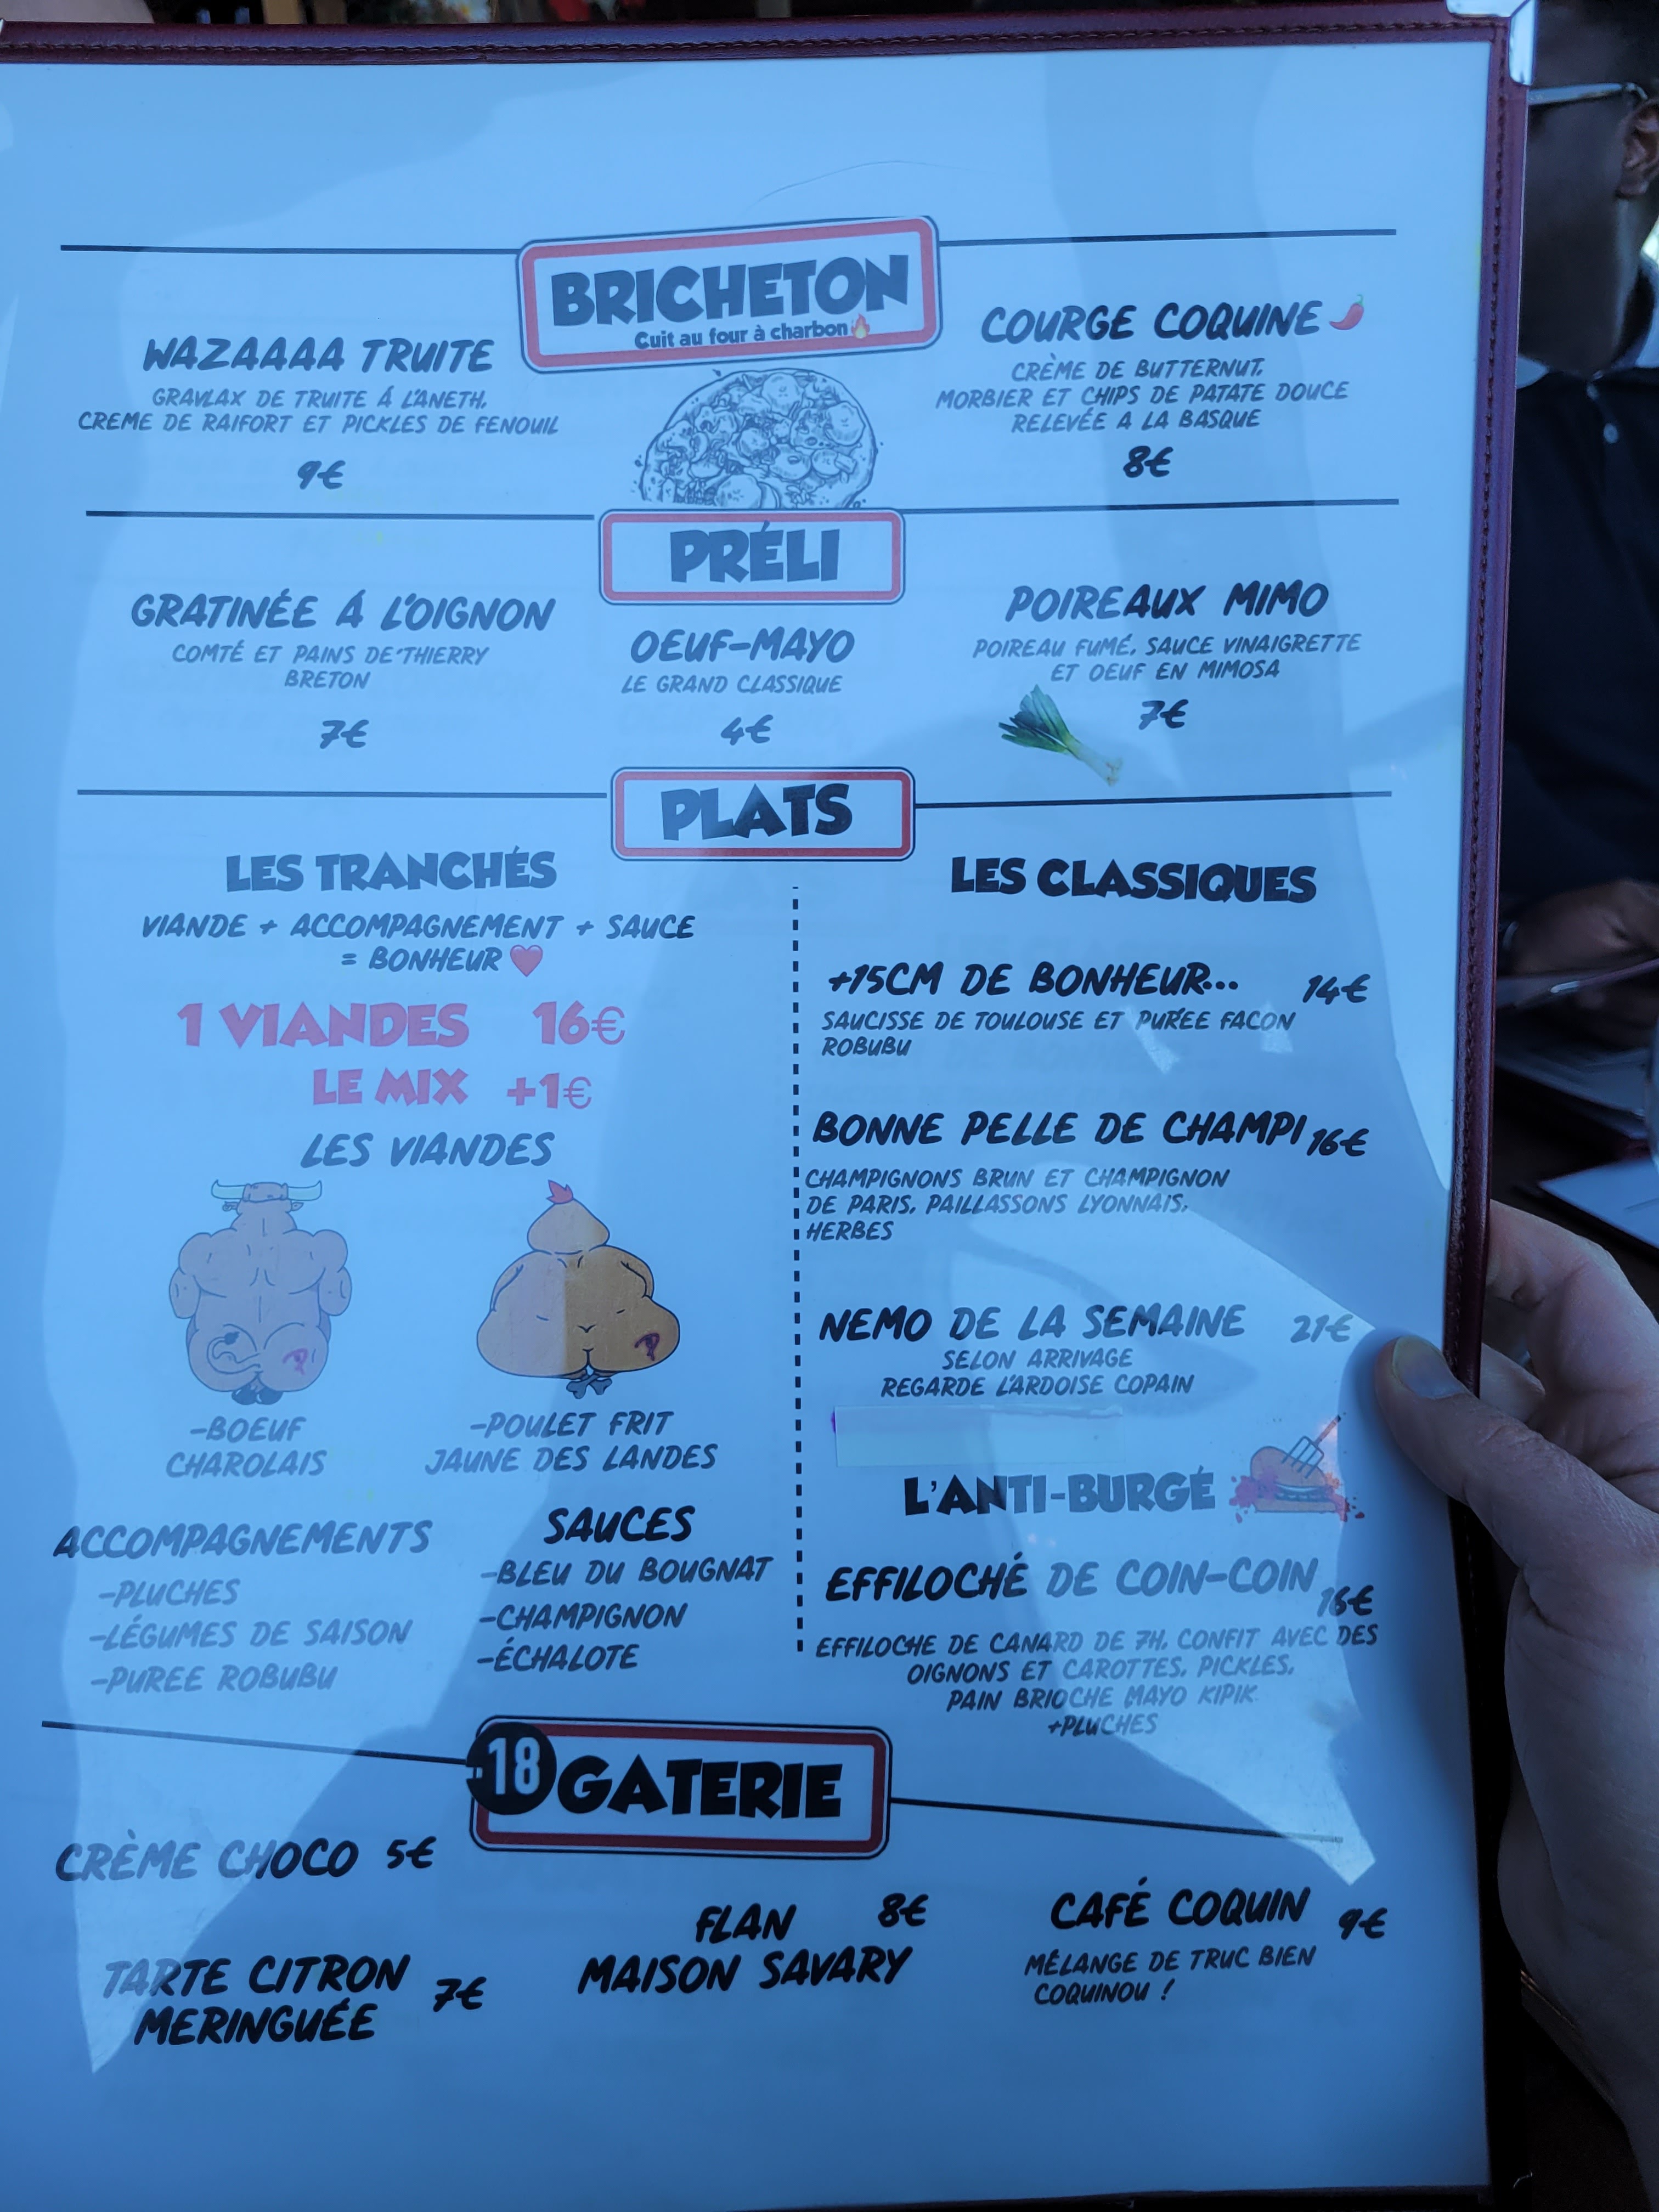 BRICHETON
Cuit au four à charbon
WAZAAAA TRUITE
GRAVLAX DE TRUITE Á L'ANETH,
CREME DE RAIFORT ET PICKLES DE FENOUIL
9€
COURGE COQUINE
CRÈME DE BUTTERNUT,
MORBIER ET CHIPS DE PATATE DOUCE
RELEVÉE A LA BASQUE
8€
PRÉLI
GRATINÉE Á L'OIGNON
COMTÉ ET PAINS DE THIERRY
BRETON
7€
OEUF-MAYO
LE GRAND CLASSIQUE
4€
POIREAUX MIMO
POIREAU FUMÉ, SAUCE VINAIGRETTE
ET OEUF EN MIMOSA
7€
PLATS
LES TRANCHÉS
VIANDE + ACCOMPAGNEMENT + SAUCE
= BONHEUR
1 VIANDES 16€
LE MIX +1€
LES VIANDES
-BOEUF
CHAROLAIS
-POULET FRIT
JAUNE DES LANDES
ACCOMPAGNEMENTS
-PLUCHES
-LÉGUMES DE SAISON
-PUREE ROBUBU
SAUCES
-BLEU DU BOUGNAT
-CHAMPIGNON
-ÉCHALOTE
LES CLASSIQUES
+15CM DE BONHEUR... 14€
SAUCISSE DE TOULOUSE ET PURÉE FACON
ROBUBU
BONNE PELLE DE CHAMPI 16€
CHAMPIGNONS BRUN ET CHAMPIGNON
DE PARIS, PAILLASSONS LYONNAIS,
HERBES
NEMO DE LA SEMAINE 21€
SELON ARRIVAGE
REGARDE L'ARDOISE COPAIN
L'ANTI-BURGÉ
EFFILOCHÉ DE COIN-COIN 16€
EFFILOCHE DE CANARD DE 7H, CONFIT AVEC DES
OIGNONS ET CAROTTES, PICKLES,
PAIN BRIOCHE MAYO KIPIK
+PLUCHES
-18 GATERIE
CRÈME CHOCO 5€
TARTE CITRON
MERINGUÉE 7€
FLAN 8€
MAISON SAVARY
CAFÉ COQUIN 9€
MÉLANGE DE TRUC BIEN
COQUINOU !